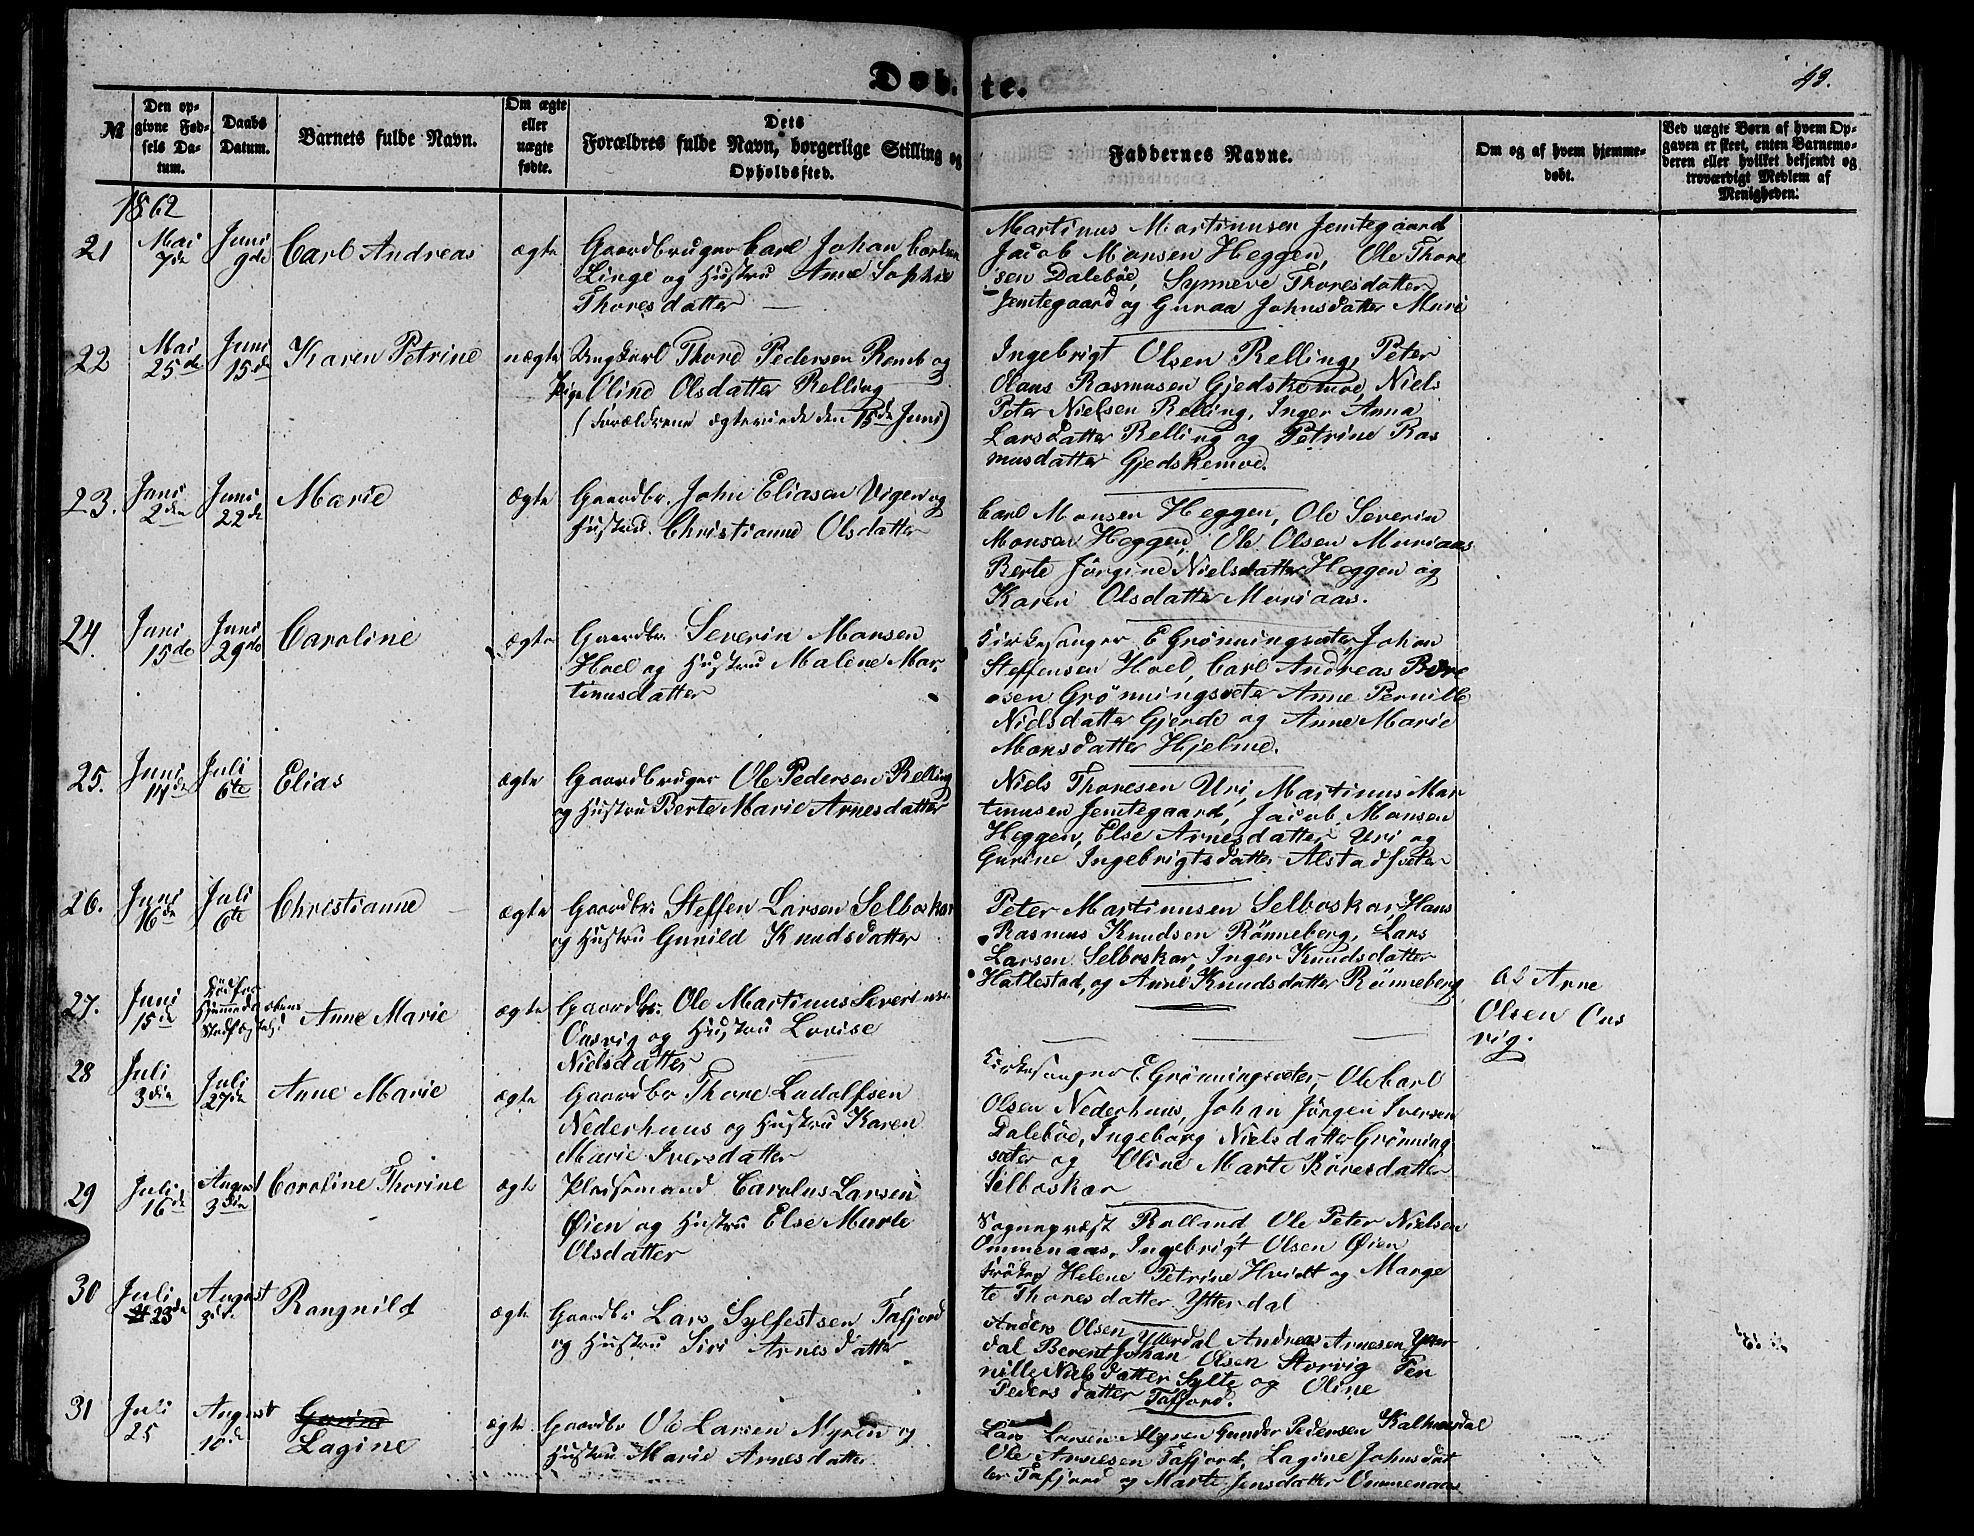 Døbte.
43.
№
Den op-
givne Fød-
sels Da-
tum.
Daabs
Datum.
Barnets fulde Navn.
Om ægte
eller
uægte
fødte.
Dets
Forældres fulde Navn, borgerlige Stilling og
Opholdssted.
Faddernes Navne.
Om og af hvem hjemme-
døbt.
Ved uægte Børn af hvem Op-
gaven er skeet, enten Barnemo-
deren eller hvilket bekjendt og
troværdigt Medlem af
Menigheden.
1862
21
Mai
7de
Juni
9de
Carl Andreas
ægte
Gaardbruger Carl Johan Carlsen
Linge og Hustru Anne Sophie
Thoresdatter
Martinus Martinusen Jemtegaard
Jacob Monsen Heggen, Ole Thore
sen Dalebøe, Synneve Thoresdatter
Jemtegaard og Guraa Johnsdatter Muri
22
Mai
25de
Juni
15de
Karen Petrine
uægte
Ungkarl Thore Pedersen Remb og
Pige Oline Olsdatter Relling
(Forældrene ægteviede den 15de Juni)
Ingebrigt Olsen Relling, Peter
Olaus Rasmusen Gjedskemoe, Niels
Peter Nielsen Relling, Inger Anna
Larsdatter Relling og Petrine Ras
musdatter Gjedskemoe.
23.
Juni
2den
Juni
22de
Marie
Ægte
Gaardbr. John Eliasen Vigen og
Hustru Christianne Olsdatter
Carl Monsen Heggen, Ole Severin
Monsen Heggen, Ole Olsen Muriaas
Berte Jørgine Nielsdatter Heggen og
Karen Olsdatter Muriaas.
24.
Juni
15de
Juni
29de
Caroline
ægte
Gaardbr. Severin Monsen
Hoel og Hustru Malene Mar-
tinusdatter
Kirkesanger E Grønningsæter, Johan
Steffensen Hoel, Carl Andreas Bore
sen Grønningsæter Anne Pernille
Nielsdatter Gjerde og Anne Marie
Monsdatter Hjelme.
25.
Juni
14de
Juli
6te
Elias
ægte
Gaardbruger Ole Pedersen Relling
og Hustru Berte Marie Arnesdatter
Niels Thoresen Uri, Martinus Mar
tinusen Jemtegaard, Jacob Monsen
Heggen, Else Arnesdatter Uri og
Gurine Ingebrigtsdatter Alstadsæter
26.
Juni
16de
Juli
6te
Christianne
ægte
Gaardbr. Steffen Larsen Selboskar
og Hustru Gunild Knudsdatter
Peter Martinusen Selboskar, Hans
Rasmus Knudsen Rønneberg, Lars
Larsen Selboskar, Inger Knudsdatter
Hatlestad, og Anne Knudsdatter Rønneberg
27.
Juni
15de
Død før
Anne Marie
ægte
Gaardbr. Ole Martinus Severinsen
Onsvig og Hustru Lovise
Nielsdatter
af Arne
Olsen Ons
vig.
28
Juli
3die
Juli
27de
Anne Marie
ægte
Gaardbr Thore Ladolfsen
Nederhuus og Hustru Karen
Marie Iversdatter
Kirkesanger E Grønningsæter, Ole Carl
Olsen Nederhuus, Johan Jørgen Iversen
Dalebøe, Ingeborg Nielsdatter Grønning
sæter og Oline Marte Koresdatter
Selboskar
29
Juli
16de
August
3die
Caroline Thorine
ægte
Pladsemand Carolus Larsen
Øien og Hustru Else Marte
Olsdatter
Sognepræst Rolland Ole Peter Nielsen
Ommenaas, Ingebrigt Olsen Øien
Frøken Helene Petrine Hvidt og Marge
te Thoresdatter Ytterdal
30
Juli
23de
August
3die
Rangnild
ægte
Gaardbr Lars Sylfestsen Tafjord
og Hustru Siri Arnesdatter
Anders Olsen Ytterdal Andreas Arnesen Ytter
dal Berent Johan Olsen Storvig Per
nille Nielsdatter Sylte og Oline
Pedersdatter Tafjord.
31
Juli
25
August
10de
Lagine
ægte
Gaardbr Ole Larsen Myren og
Hustru Marie Arnesdatter
Lars Larsen Myren Gunder Pedersen Kalhusdal
Ole Arnesen Tafjord, Lagine Johnsdat
ter Tafjord og Marte Jensdatter Ommenaas